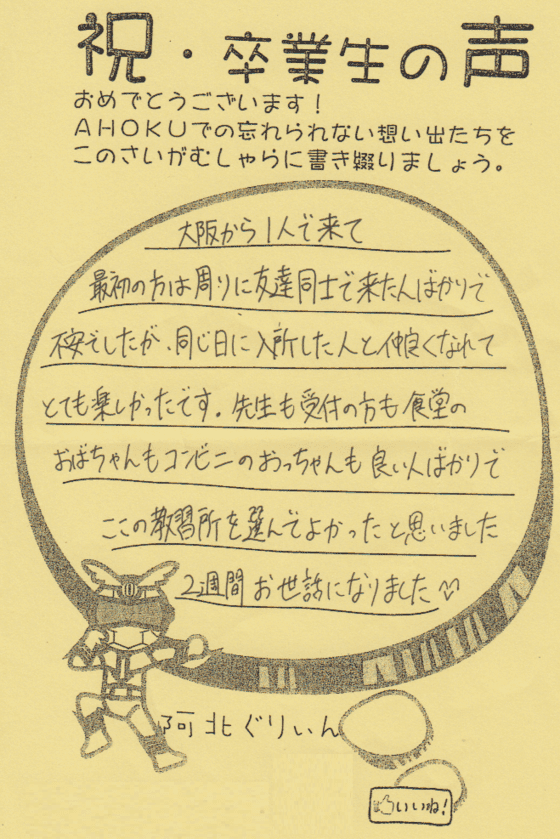 祝・卒業生の声
おめでとうございます！
AHOKUでの忘れられない想い出たちを
このさいがむしゃらに書き綴りましょう。
大阪から1人で来て
最初の方は周りに友達同士で来た人ばかりで
不安でしたが、同じ日に入所した人と仲良くなれて
とても楽しかったです。先生も受付の方も食堂の
おばちゃんもコンビニのおっちゃんも良い人ばかりで
ここの教習所を選んでよかったと思いました
2週間お世話になりました
阿北ぐりぃん
いいね!